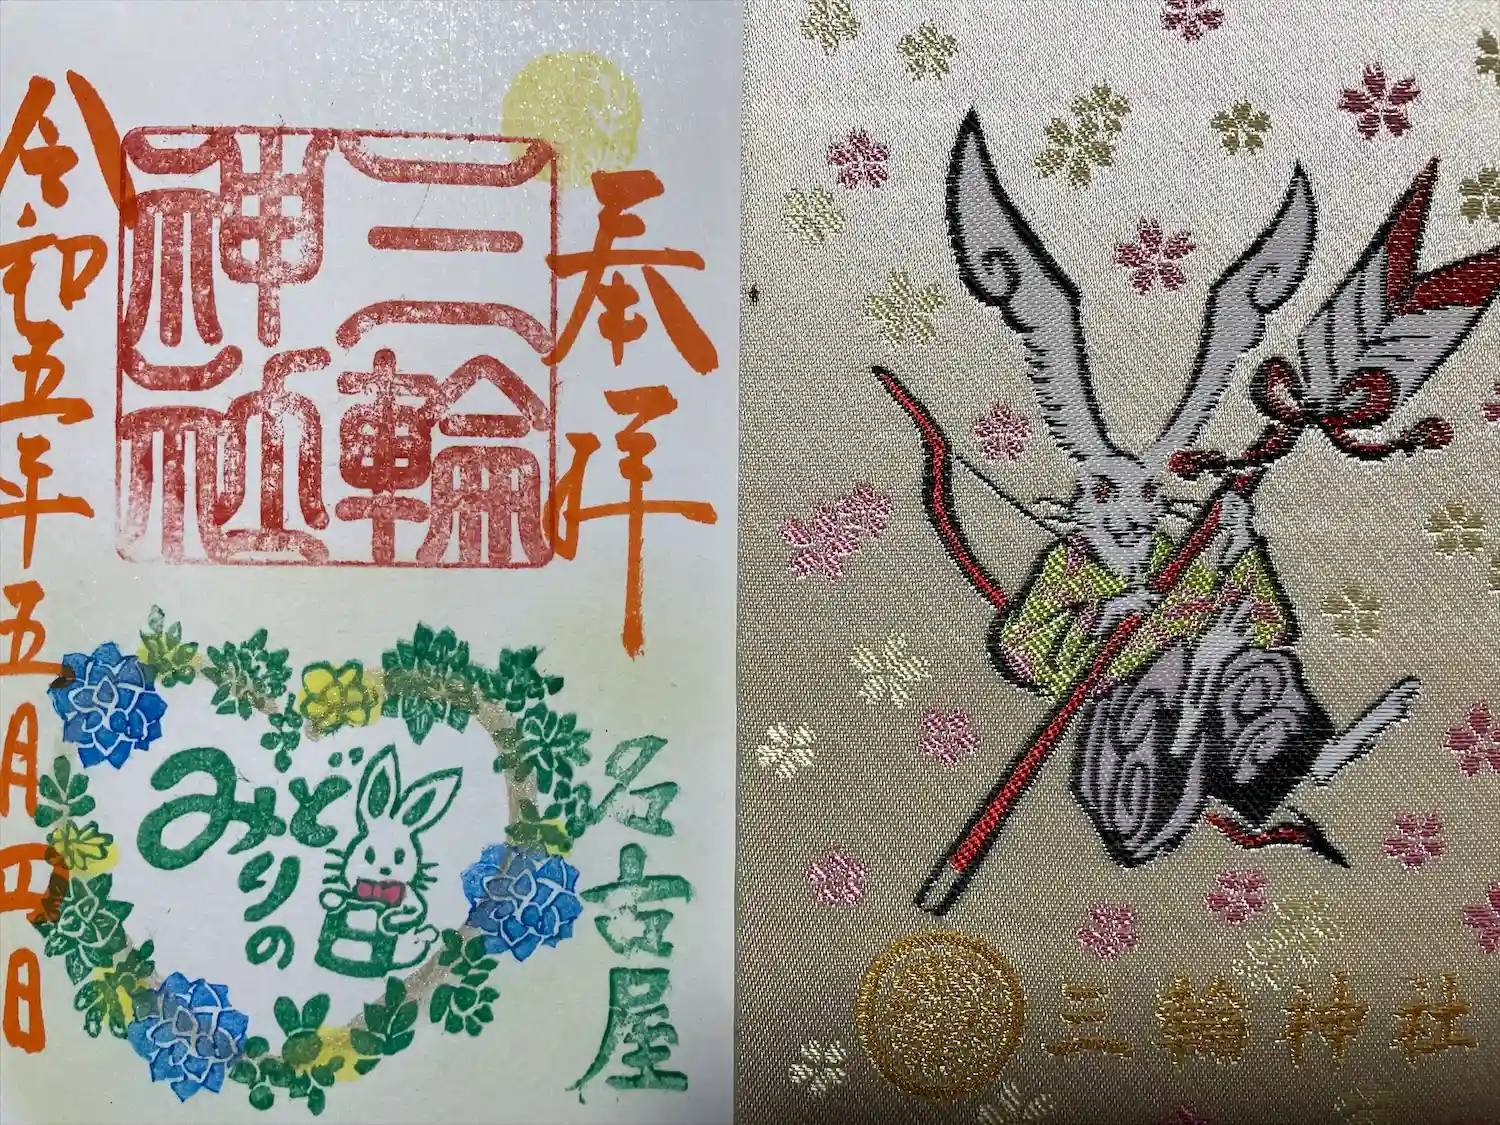 奉拝
三輪
神社
名古屋
みどりの日
令和五年五月四日
三輪神社